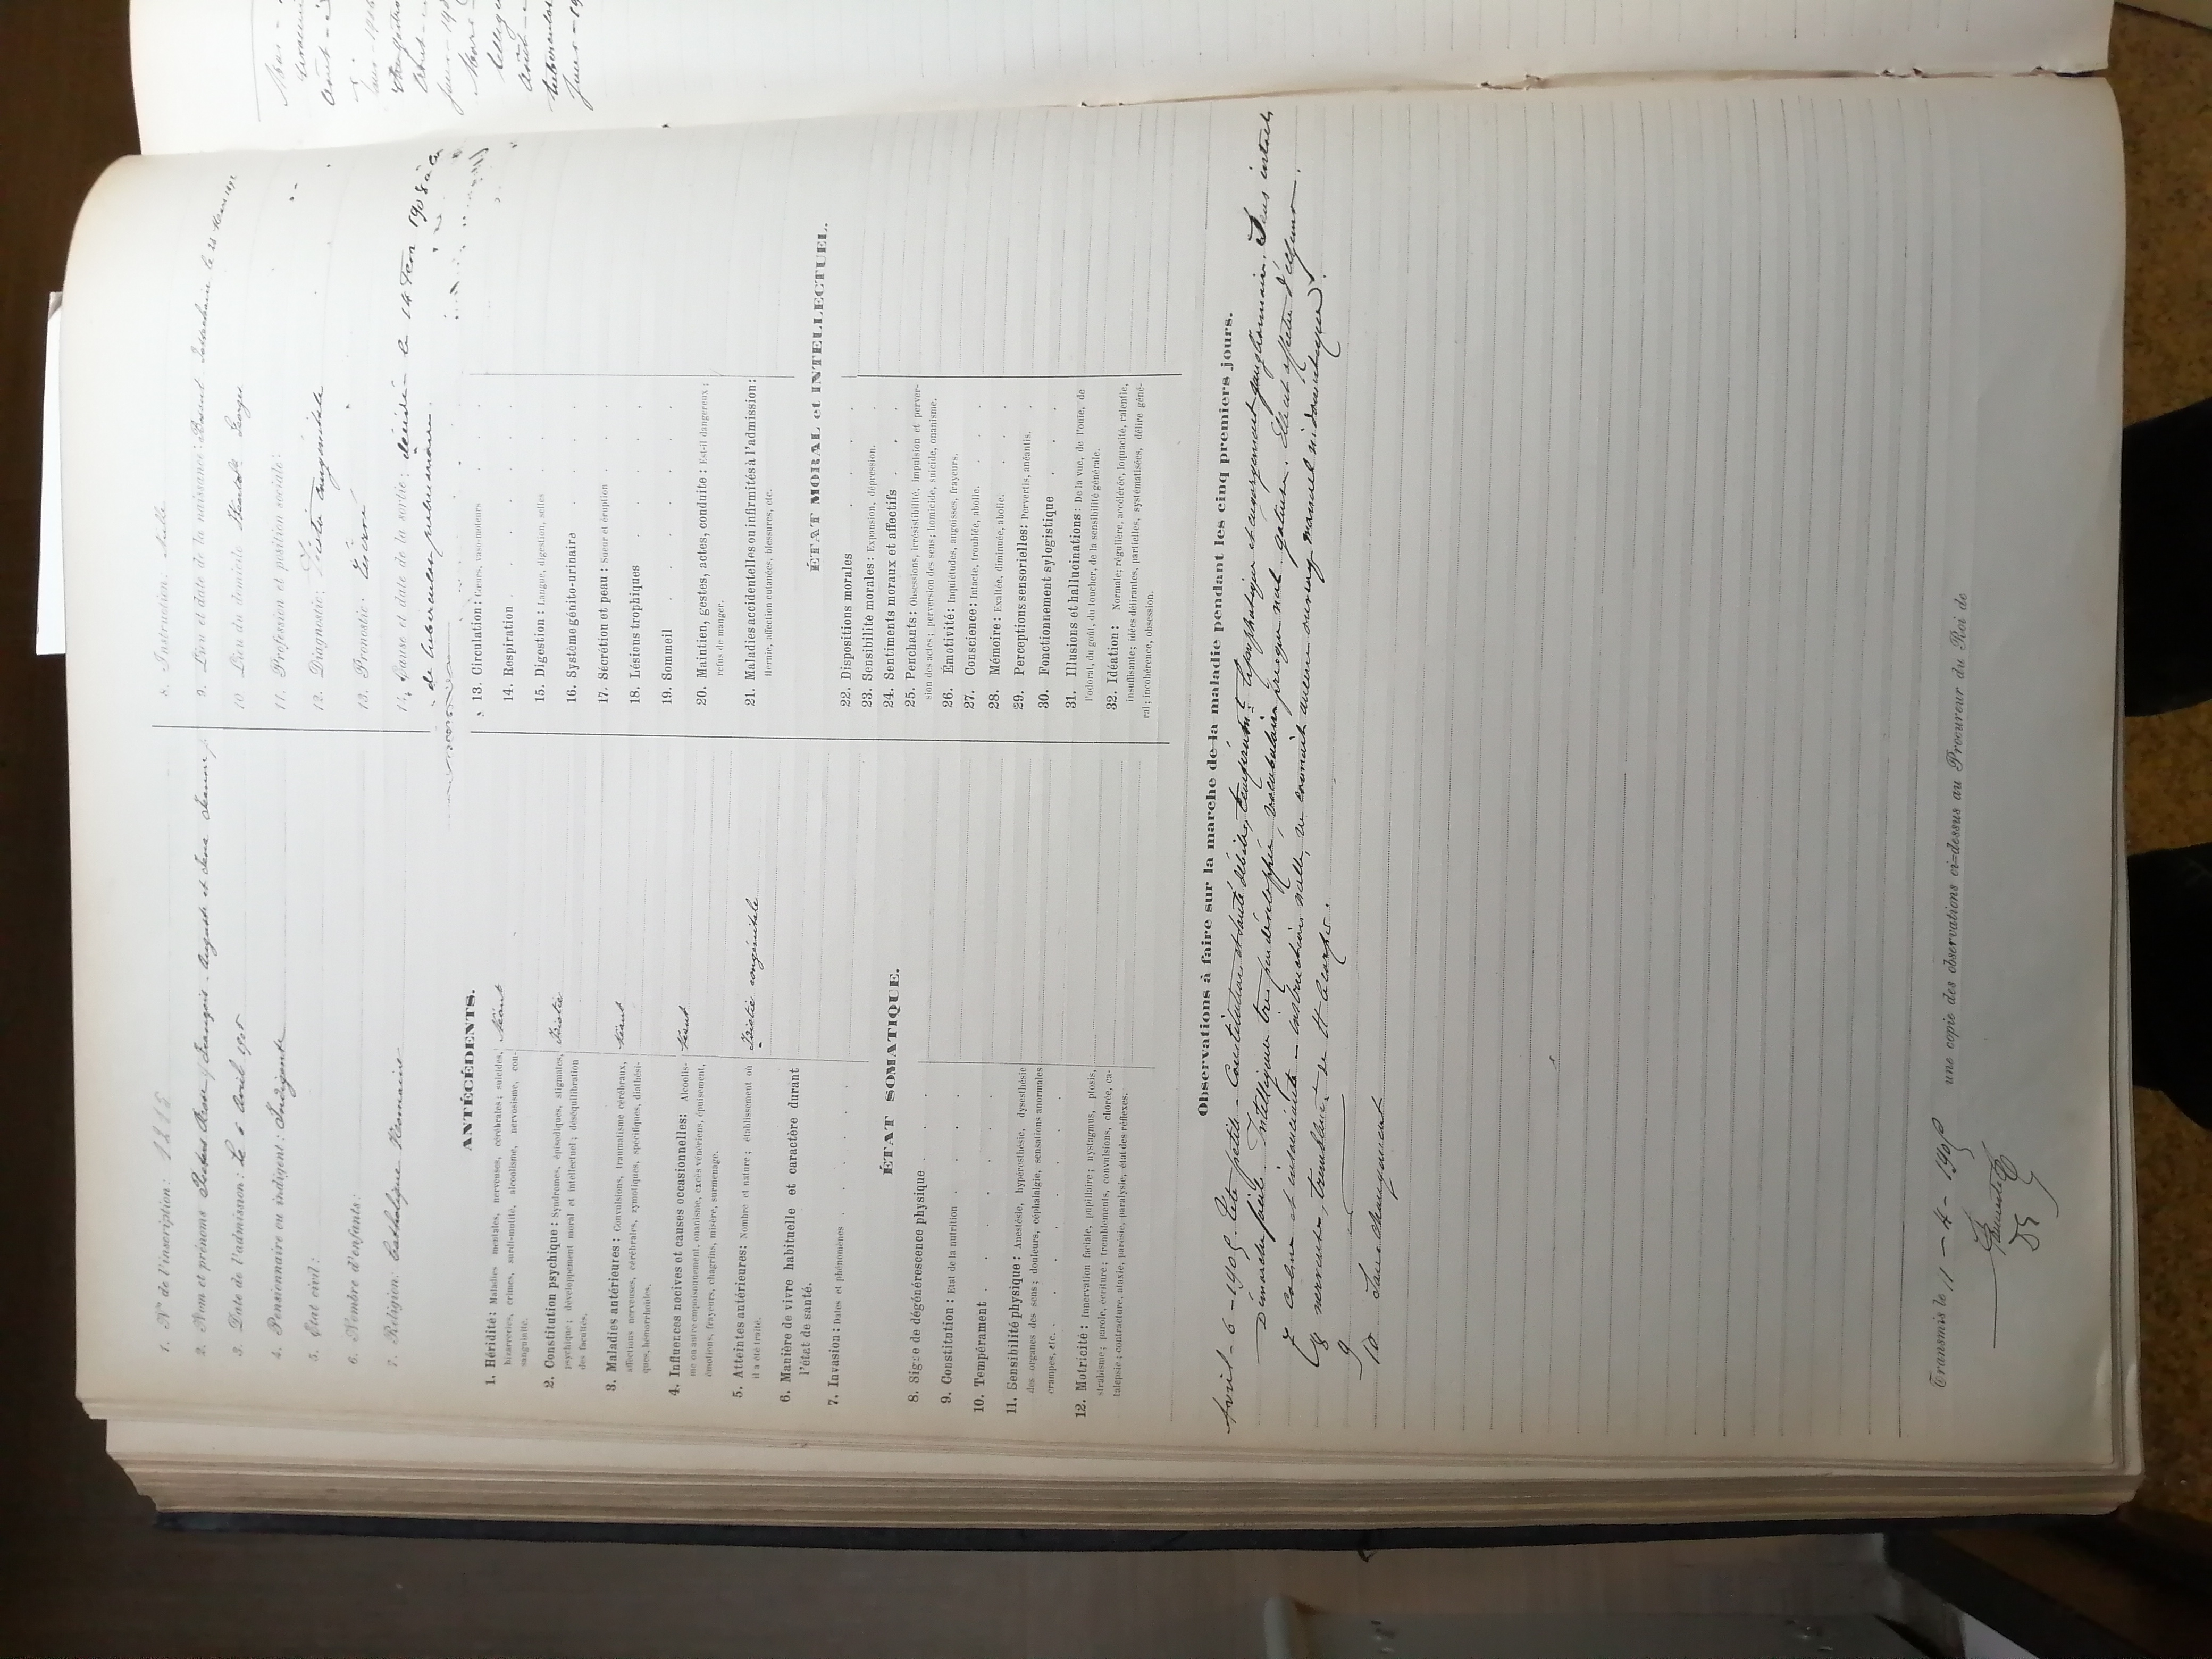 1. N° de l'inscription : 1215
2. Nom et prénoms Peeters Rose (François-Auguste et Jena Jeanne)
3. Date de l'admission : Le 6 Avril 1905
4. Pensionnaire ou indigent : Indigente
5. État civil :
6. Nombre d'enfants :
7. Religion : Catholique Romaine
8. Instruction : Nulle
9. Lieu et date de la naissance : Bossut le 28 Mars
10. Lieu du domicile Georges
11. Profession et position sociale :
12. Diagnostic : Idiotie congénitale
13. Pronostic : Réservé
14. Cause et date de la sortie : décédée le 14 1908
de tuberculose pulmonaire.
ANTÉCÉDENTS.
1. Hérédité : Maladies mentales, nerveuses, cérébrales ; suicides, Néant
bizarreries, crimes, surdi-mutité, alcoolisme, nervosisme, con-
sanguinité.
2. Constitution psychique : Syndromes, épisodiques, stigmates, Idiotie
psychique ; développement moral et intellectuel ; déséquilibration
des facultés.
3. Maladies antérieures : Convulsions, traumatisme cérébraux, Néant
affections nerveuses, cérébrales, zymotiques, spécifiques, diathési-
ques, hémorrhoïdes.
4. Influences nocives et causes occasionnelles : Alcoolis- Néant
me ou autre empoisonnement, onanisme, excès vénériens, épuisement,
émotions, frayeurs, chagrins, misère, surmenage.
5. Atteintes antérieures : Nombre et nature ; établissement où Idiotie congénitale
il a été traité.
6. Manière de vivre habituelle et caractère durant
l'état de santé.
7. Invasion : Dates et phénomènes
ÉTAT SOMATIQUE.
8. Signe de dégénérescence physique
9. Constitution : Etat de la nutrition
10. Tempérament
11. Sensibilité physique : Anestésie, hypéresthésie, dysesthésie
des organes des sens ; douleurs, céphalalgie, sensations anormales
crampes, etc.
12. Motricité : Innervation faciale, pupillaire ; nystagmus, ptosis,
strabisme ; parole, écriture ; tremblements, convulsions, chorée, ca-
talepsie ; contracture, ataxie, parésie, paralysie, état des réflexes.
13. Circulation : Cœurs, vaso-moteurs
14. Respiration
15. Digestion : Langue, digestion, selles
16. Système génito-urinaire
17. Sécrétion et peau : Sueur et éruption
18. Lésions trophiques
19. Sommeil
20. Maintien, gestes, actes, conduite : Est-il dangereux ;
refus de manger.
21. Maladies accidentelles ou infirmités à l'admission :
Hernie, affection cutanées, blessures, etc.
ÉTAT MORAL et INTELLECTUEL.
22. Dispositions morales
23. Sensibilité morales : Expansion, dépression.
24. Sentiments moraux et affectifs
25. Penchants : Obsessions, irrésistibilité, impulsion et perver-
sion des actes ; perversion des sens ; homicide, suicide, onanisme.
26. Émotivité : Inquiétudes, angoisses, frayeurs.
27. Conscience : Intacte, troublée, abolie.
28. Mémoire : Exaltée, diminuée, abolie.
29. Perceptions sensorielles : Pervertis, anéantis.
30. Fonctionnement sylogistique
31. Illusions et hallucinations : De la vue, de l'ouïe, de
l'odorat, du goût, du toucher, de la sensibilité générale.
32. Idéation : Normale ; régulière, accélérée, loquacité, ralentie,
insuffisante ; idées délirantes, partielles, systématisées, délire géné-
ral ; incohérence, obsession.
Observations à faire sur la marche de la maladie pendant les cinq premiers jours.
Avril - 6 - 1905. Tête petite - Constitution et santé débiles, tempéramt lymphatique et engorgement ganglionnaire. Sens intacts
Démarche facile. Intelligence très peu développée, vocabulaire presque nul. gâteuse. Elle est
7 calme et insouciante - instruction nulle, ne connaît aucun ouvrage manuel ni domestique.
8 nerveuse, tremblemt de tt le corps.
9
10 Sans changement
Transmis le 11 - 4 - 1905 une copie des observations ci=dessus au Procureur du Roi de
Août
tuberculos